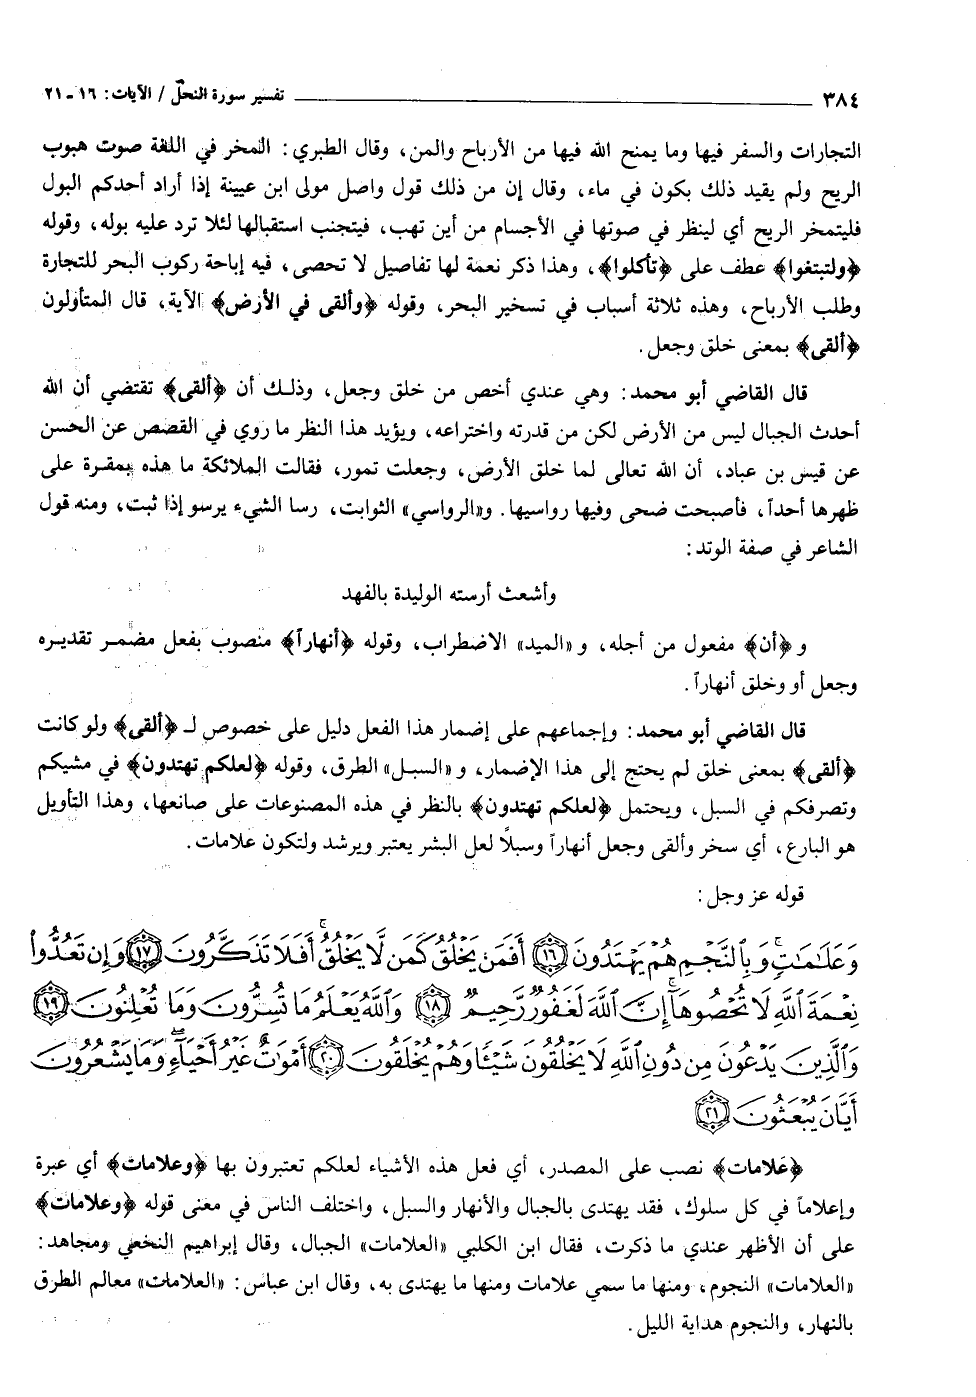 ٣٨٤ تفسير سورة النحل / الآيات: ١٦ - ٢١
التجارات والسفر فيها وما يمنح الله فيها من الأرباح والمن، وقال الطبري: المخر في اللغة صوت هبوب
الريح ولم يقيد ذلك بكون في ماء، وقال إن من ذلك قول واصل مولى ابن عيينة إذا أراد أحدكم البول
فليتمخر الريح أي لينظر في صوتها في الأجسام من أين تهب، فيتجنب استقبالها لئلا ترد عليه بوله، وقوله
﴿ولتبتغوا﴾ عطف على ﴿تأكلوا﴾، وهذا ذكر نعمة لها تفاصيل لا تحصى، فيه إباحة ركوب البحر للتجارة
وطلب الأرباح، وهذه ثلاثة أسباب في تسخير البحر، وقوله ﴿وألقى في الأرض﴾ الآية، قال المتأولون
﴿ألقى﴾ بمعنى خلق وجعل.
قال القاضي أبو محمد: وهي عندي أخص من خلق وجعل، وذلك أن ﴿ألقى﴾ تقتضي أن الله
أحدث الجبال ليس من الأرض لكن من قدرته واختراعه، ويؤيد هذا النظر ما روي في القصص عن الحسن
عن قيس بن عباد، أن الله تعالى لما خلق الأرض، وجعلت تمور، فقالت الملائكة ما هذه بمقرة على
ظهرها أحداً، فأصبحت ضحى وفيها رواسيها. و«الرواسي» الثوابت، رسا الشيء يرسو إذا ثبت، ومنه قول
الشاعر في صفة الوتد:
وأشعث أرسته الوليدة بالفهد
و ﴿أن﴾ مفعول من أجله، و «الميد» الاضطراب، وقوله ﴿أنهاراً﴾ منصوب بفعل مضمر تقديره
وجعل أو وخلق أنهاراً.
قال القاضي أبو محمد: وإجماعهم على إضمار هذا الفعل دليل على خصوص لـ ﴿ألقى﴾ ولو كانت
﴿ألقى﴾ بمعنى خلق لم يحتج إلى هذا الإضمار، و «السبل» الطرق، وقوله ﴿لعلكم تهتدون﴾ في مشيكم
وتصرفكم في السبل، ويحتمل ﴿لعلكم تهتدون﴾ بالنظر في هذه المصنوعات على صانعها، وهذا التأويل
هو البارع، أي سخر وألقى وجعل أنهاراً وسبلًا لعل البشر يعتبر ويرشد ولتكون علامات.
قوله عز وجل:
وَعَلَٰمَٰتٍۚ وَبِٱلنَّجْمِ هُمْ يَهْتَدُونَ ﴿١٦﴾ أَفَمَن يَخْلُقُ كَمَن لَّا يَخْلُقُۗ أَفَلَا تَذَكَّرُونَ ﴿١٧﴾ وَإِن تَعُدُّوا۟
نِعْمَةَ ٱللَّهِ لَا تُحْصُوهَآۗ إِنَّ ٱللَّهَ لَغَفُورٌ رَّحِيمٌ ﴿١٨﴾ وَٱللَّهُ يَعْلَمُ مَا تُسِرُّونَ وَمَا تُعْلِنُونَ ﴿١٩﴾
وَٱلَّذِينَ يَدْعُونَ مِن دُونِ ٱللَّهِ لَا يَخْلُقُونَ شَيْـًٔا وَهُمْ يُخْلَقُونَ ﴿٢٠﴾ أَمْوَٰتٌ غَيْرُ أَحْيَآءٍۖ وَمَا يَشْعُرُونَ
أَيَّانَ يُبْعَثُونَ ﴿٢١﴾
﴿علامات﴾ نصب على المصدر، أي فعل هذه الأشياء لعلكم تعتبرون بها ﴿وعلامات﴾ أي عبرة
وإعلاماً في كل سلوك، فقد يهتدى بالجبال والأنهار والسبل، واختلف الناس في معنى قوله ﴿وعلامات﴾
على أن الأظهر عندي ما ذكرت، فقال ابن الكلبي «العلامات» الجبال، وقال إبراهيم النخعي ومجاهد:
«العلامات» النجوم، ومنها ما سمي علامات ومنها ما يهتدى به، وقال ابن عباس: «العلامات» معالم الطرق
بالنهار، والنجوم هداية الليل.